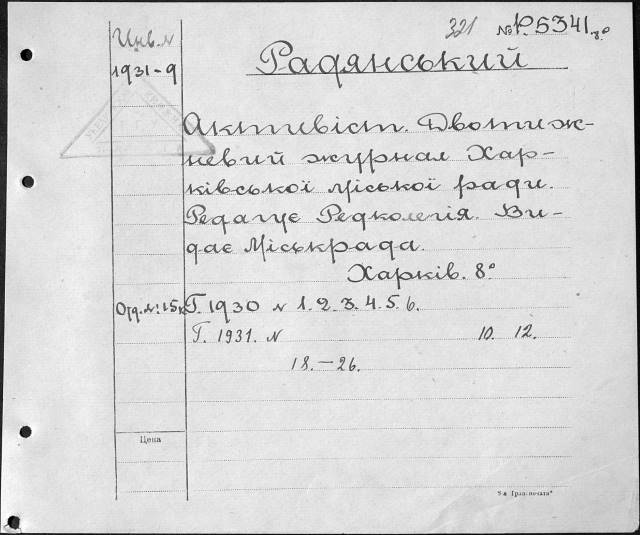 Инв. №
321 № P. 5341 8°
1931-9
Радянський
Активіст. Двотиж-
невий журнал Хар-
ківської міської ради.
Редагує Редколегія. Ви-
дає Міськрада.
Харків. 8°
Г. 1930 № 1. 2. 3. 4. 5. 6.
Г. 1931. № 10. 12.
18. — 26.
Цена